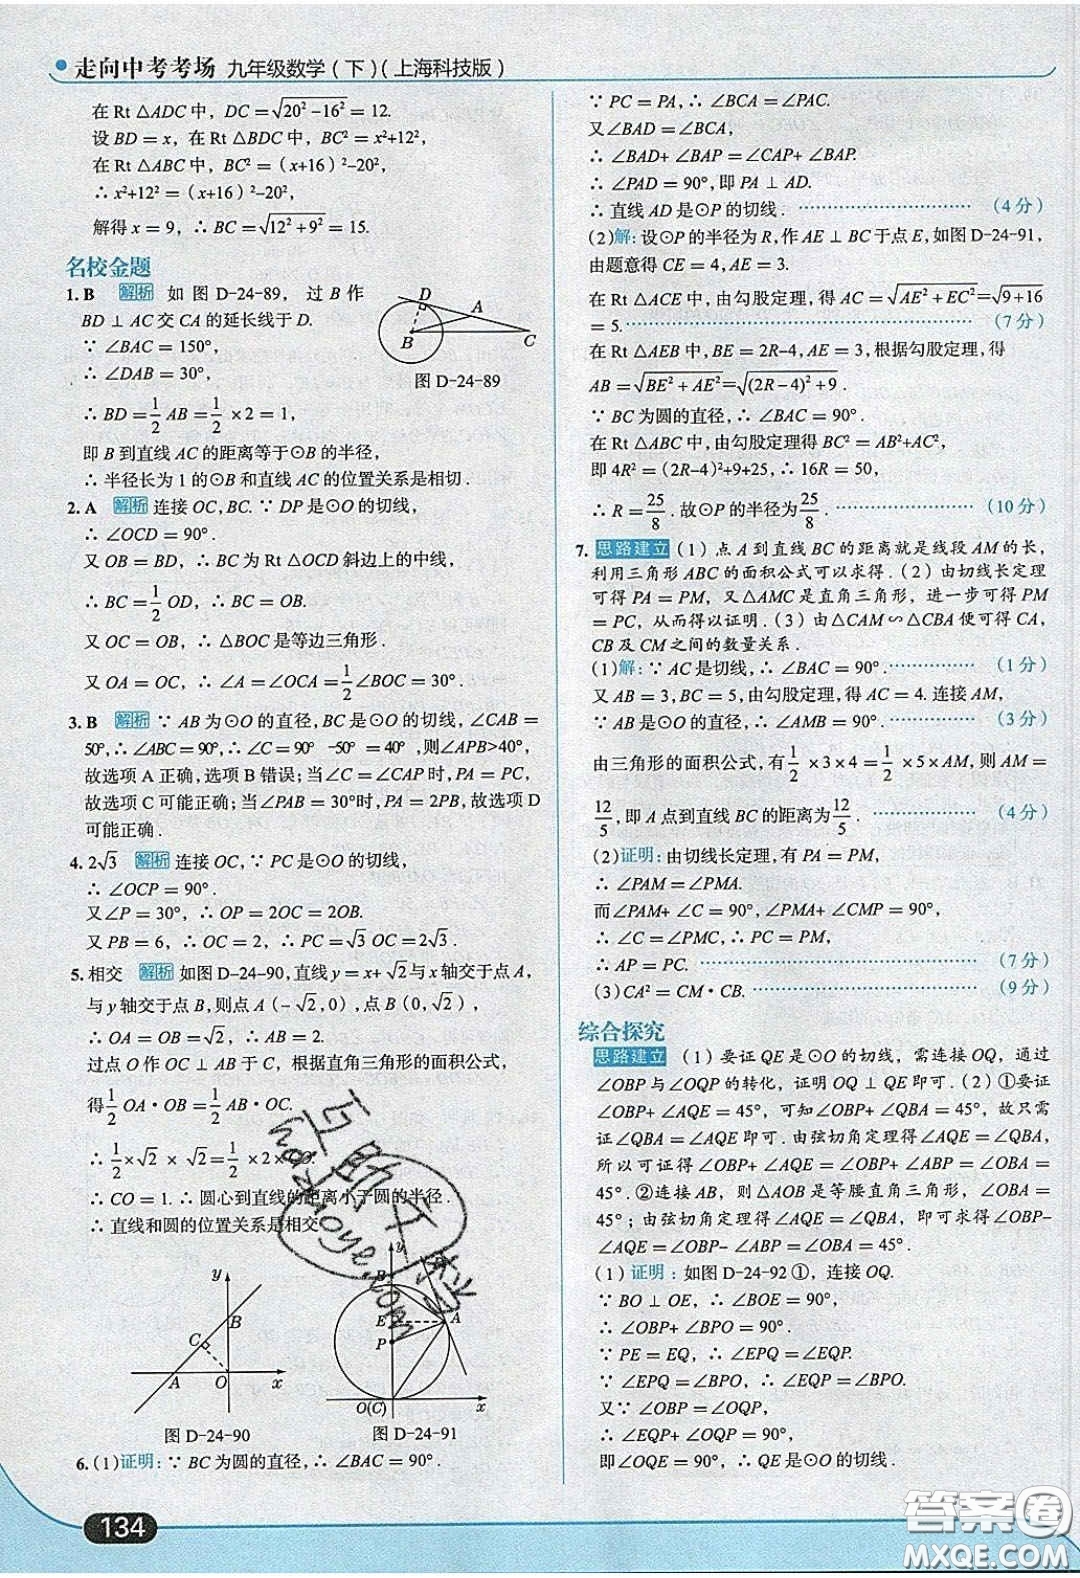 走向中考考场 九年级数学(下)(上海科技版)
在 Rt △ADC 中, DC = √(20²-16²) = 12.
设 BD = x, 在 Rt △BDC 中, BC² = x²+12²,
在 Rt △ABC 中, BC² = (x+16)²-20²,
∴ x²+12² = (x+16)²-20²,
解得 x = 9, ∴ BC = √(12²+9²) = 15.
名校金题
1. B 解析 如图 D-24-89, 过 B 作
BD ⊥ AC 交 CA 的延长线于 D.
∵ ∠BAC = 150°,
∴ ∠DAB = 30°,
∴ BD = 1/2 AB = 1/2 × 2 = 1,
D
A
B
C
图 D-24-89
即 B 到直线 AC 的距离等于⊙B 的半径,
∴ 半径长为 1 的⊙B 和直线 AC 的位置关系是相切.
2. A 解析 连接 OC, BC. ∵ DP 是⊙O 的切线,
∴ ∠OCD = 90°.
又 OB = BD, ∴ BC 为 Rt △OCD 斜边上的中线,
∴ BC = 1/2 OD, ∴ BC = OB.
又 OC = OB, ∴ △BOC 是等边三角形.
又 OA = OC, ∴ ∠A = ∠OCA = 1/2 ∠BOC = 30°.
3. B 解析 ∵ AB 为⊙O 的直径, BC 是⊙O 的切线, ∠CAB =
50°, ∴ ∠ABC = 90°, ∴ ∠C = 90° -50° = 40°, 则∠APB>40°,
故选项 A 正确, 选项 B 错误; 当∠C = ∠CAP 时, PA = PC,
故选项 C 可能正确; 当∠PAB = 30°时, PA = 2PB, 故选项 D
可能正确.
4. 2√3 解析 连接 OC, ∵ PC 是⊙O 的切线,
∴ ∠OCP = 90°.
又∠P = 30°, ∴ OP = 2OC = 2OB.
又 PB = 6, ∴ OC = 2, ∴ PC = √3 OC = 2√3.
5. 相交 解析 如图 D-24-90, 直线 y = x+ √2 与 x 轴交于点 A,
与 y 轴交于点 B, 则点 A (-√2, 0), 点 B (0, √2),
∴ OA = OB = √2, ∴ AB = 2.
过点 O 作 OC ⊥ AB 于 C, 根据直角三角形的面积公式,
得 1/2 OA·OB = 1/2 AB·OC.
∴ 1/2 × √2 × √2 = 1/2 × 2 × OC.
∴ CO = 1. ∴ 圆心到直线的距离小于圆的半径.
∴ 直线和圆的位置关系是相交.
y
B
C
A
O
x
图 D-24-90
y
B
E
A
P
O(C)
x
图 D-24-91
6. (1)证明: ∵ BC 为圆的直径, ∴ ∠BAC = 90°.
134
∵ PC = PA, ∴ ∠BCA = ∠PAC.
又∠BAD = ∠BCA,
∴ ∠BAD+ ∠BAP = ∠CAP+ ∠BAP.
∴ ∠PAD = 90°, 即 PA ⊥ AD.
∴ 直线 AD 是⊙P 的切线. (4 分)
(2)解: 设⊙P 的半径为 R, 作 AE ⊥ BC 于点 E, 如图 D-24-91,
由题意得 CE = 4, AE = 3.
在 Rt △ACE 中, 由勾股定理, 得 AC = √(AE²+EC²) = √(9+16)
= 5. (7 分)
在 Rt △AEB 中, BE = 2R-4, AE = 3, 根据勾股定理, 得
AB = √(BE²+AE²) = √((2R-4)²+9).
∵ BC 为圆的直径, ∴ ∠BAC = 90°.
在 Rt △ABC 中, 由勾股定理得 BC² = AB²+AC²,
即 4R² = (2R-4)²+9+25, ∴ 16R = 50,
∴ R = 25/8. 故⊙P 的半径为 25/8. (10 分)
7. 思路建立 (1) 点 A 到直线 BC 的距离就是线段 AM 的长,
利用三角形 ABC 的面积公式可以求得. (2) 由切线长定理
可得 PA = PM, 又△AMC 是直角三角形, 进一步可得 PM
= PC, 从而得以证明. (3) 由△CAM∽△CBA 便可得 CA,
CB 及 CM 之间的数量关系.
(1)解: ∵ AC 是切线, ∴ ∠BAC = 90°. (1 分)
又 AB = 3, BC = 5, 由勾股定理, 得 AC = 4. 连接 AM,
∵ AB 是⊙O 的直径, ∴ ∠AMB = 90°. (3 分)
由三角形的面积公式, 有 1/2 ×3×4 = 1/2 ×5×AM, 则 AM =
12/5, 即 A 点到直线 BC 的距离为 12/5. (4 分)
(2)证明: 由切线长定理, 有 PA = PM,
∴ ∠PAM = ∠PMA.
而∠PAM+ ∠C = 90°, ∠PMA+ ∠CMP = 90°,
∴ ∠C = ∠PMC, ∴ PC = PM,
∴ AP = PC. (7 分)
(3) CA² = CM·CB. (9 分)
综合探究
思路建立 (1) 要证 QE 是⊙O 的切线, 需连接 OQ, 通过
∠OBP 与∠OQP 的转化, 证明 OQ ⊥ QE 即可. (2) ①要证
∠OBP+ ∠AQE = 45°, 可知∠OBP+ ∠ABP = 45°, 故只需
证∠QBA = ∠AQE 即可. 由弦切角定理得∠AQE = ∠QBA,
所以可证得∠OBP+ ∠AQE = ∠OBP+ ∠ABP = ∠OBA =
45°. ②连接 AB, 则△AOB 是等腰直角三角形, ∠OBA =
45°; 由弦切角定理得∠AQE = ∠QBA, 即可求得∠OBP-
∠AQE = ∠OBP- ∠ABP = ∠OBA = 45°.
(1) 证明: 如图 D-24-92 ①, 连接 OQ.
∵ BO ⊥ OE, ∴ ∠BOE = 90°,
∴ ∠OBP+ ∠BPO = 90°.
∵ PE = EQ, ∴ ∠EPQ = ∠EQP.
∵ ∠EPQ = ∠BPO, ∴ ∠EQP = ∠BPO.
又∵ ∠OBP = ∠OQP,
∴ ∠EQP + ∠OQP = 90°,
即∠OQE = 90°. ∴ QE 是⊙O 的切线.
答案圈
MXQE.COM